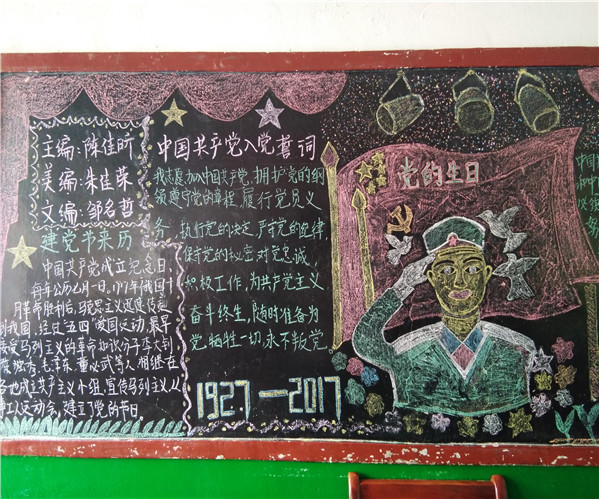 主编:陈佳昕
美编:朱佳荣
文编:邹名哲
建党节来历
中国共产党成立纪念日,
每年公历七月一日,1917年俄国十
月革命胜利后,马克思主义迅速传
到我国,经过"五四"爱国运动,最早
接受马列主义的革命知识分子李大钊,
陈独秀,毛泽东,董必武等人相继在
各地成立共产主义小组,宣传马列主义,从
事工人运动,建立了党的节日
中国共产党入党誓词
我志愿加入中国共产党,拥护党的纲
领遵守党的章程,履行党员义
务,执行党的决定,严守党的纪律,
保守党的秘密,对党忠诚,
积极工作,为共产主义
奋斗终生,随时准备为
党牺牲一切,永不叛党
1927—2017
党的生日
中国